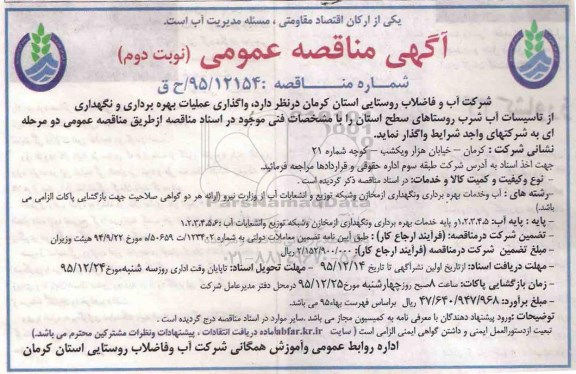 یکی از ارکان اقتصاد مقاومتی ، مسئله مدیریت آب است.
آگهی مناقصه عمومی (نوبت دوم)
شماره مناقصه :۹۵/۱۲۱۵۴/ح ق
شرکت آب و فاضلاب روستایی استان کرمان درنظر دارد، واگذاری عملیات بهره برداری و نگهداری
از تاسیسات آب شرب روستاهای سطح استان را با مشخصات فنی موجود در اسناد مناقصه ازطریق مناقصه عمومی دو مرحله
ای به شرکتهای واجد شرایط واگذار نماید.
نشانی شرکت : کرمان – خیابان هزار ویکشب – کوچه شماره ۲۱
جهت اخذ اسناد به آدرس شرکت طبقه سوم اداره حقوقی و قراردادها مراجعه فرمائید.
- نوع وکیفیت و کمیت کالا و خدمات: در اسناد مناقصه ذکر گردیده است .
-رشته های : آب وخدمات بهره برداری ونگهداری ازمخازن وشبکه توزیع و انشعابات آب از وزارت نیرو (ارائه هر دو گواهی صلاحیت جهت بازگشایی پاکات الزامی می
باشد.)
- پایه : پایه آب: ۱،۲،۳،۴،۵و پایه خدمات بهره برداری ونگهداری ازمخازن وشبکه توزیع وانشعابات آب :۱،۲،۳،۴،۵،۶
- تضمین شرکت درمناقصه: (فرآیند ارجاع کار) : طبق آیین نامه تضمین معاملات دولتی به شماره ۱۲۳۴۰۲/ت ۵۰۶۵۹ه مورخ ۹۴/۹/۲۲ هیئت وزیران
- مبلغ تضمین شرکت درمناقصه (فرآیند ارجاع کار): ۲/۱۵۲/۹۰۰/۰۰۰ریال
- مهلت دریافت اسناد: ازتاریخ اولین نشرآگهی تا تاریخ ۹۵/۱۲/۱۴ - مهلت تحویل اسناد: تاپایان وقت اداری روزسه شنبه مورخ ۹۵/۱۲/۲۴
- زمان بازگشایی پاکات: ساعت ۸صبح روزچهارشنبه مورخ ۹۵/۱۲/۲۵ درمحل دفتر مدیرعامل شرکت
- مبلغ برآورد: ۴۷/۶۴۰/۹۴۷/۹۶۸ ریال براساس فهرست بهاء۹۵ می باشد.
توضیحات: ورود پیشنهاد دهندگان با معرفی نامه به کمیسیون مجاز می باشد .سایر موارد در اسناد مناقصه درج گردیده است .
تبعیت ازدستورالعمل ایمنی و داشتن گواهی ایمنی الزامی است ( سایت abfar.kr.irآماده دریافت انتقادات ، پیشنهادات ونظرات مشترکین محترم می باشد.)
اداره روابط عمومی وآموزش همگانی شرکت آب وفاضلاب روستایی استان کرمان